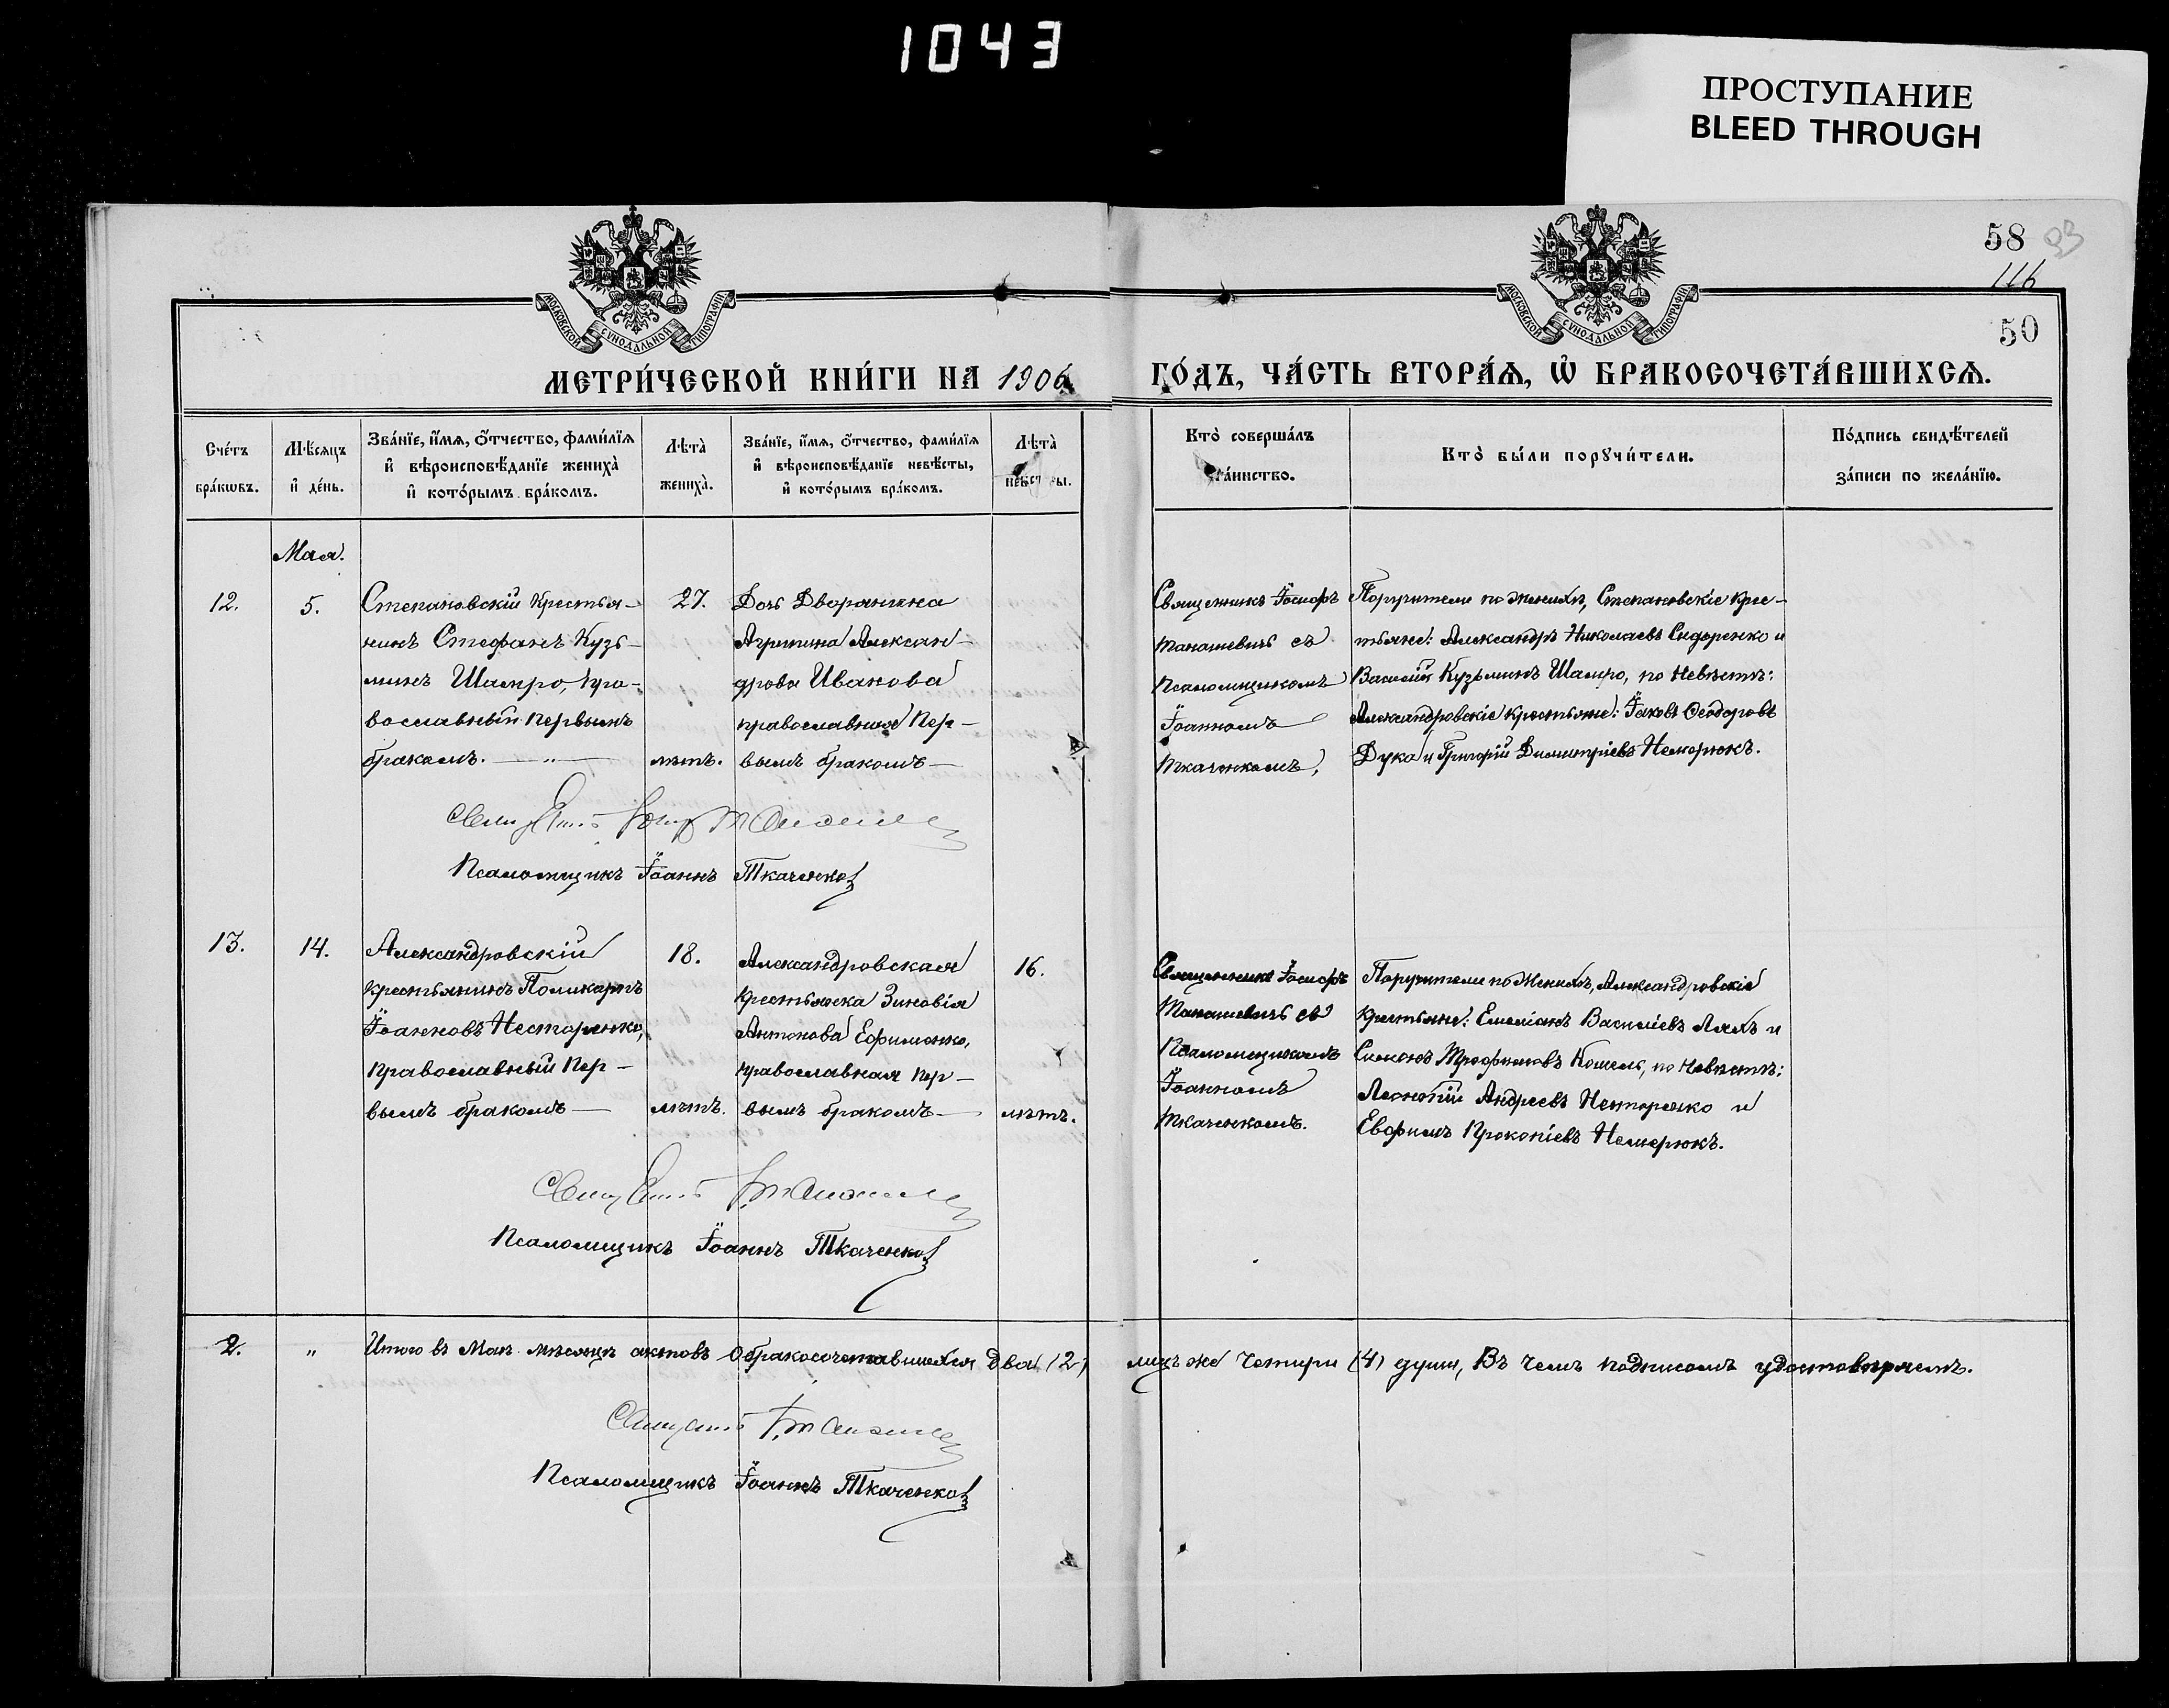 1043
ПРОСТУПАНИЕ
BLEED THROUGH
58 93
116
50
МОСКОВСКОЙ СѴНОДАЛЬНОЙ ТИПОГРАФІИ
МОСКОВСКОЙ СѴНОДАЛЬНОЙ ТИПОГРАФІИ
МЕТРИ́ЧЕСКОЙ КНИ́ГИ НА 1906 ГО́ДЪ, ЧА́СТЬ ВТОРА́Ѧ, Ѽ БРАКОСОЧЕТА́ВШИХСѦ.
Сче́тъ
бра́кѡвъ.
Мѣ́сяцъ
и҆ де́нь.
Зва́нїе, и҆́мя, ѻ҆́тчество, фами́лїя
и҆ вѣроисповѣ́данїе жениха̀
и҆ кото́рымъ бра́комъ.
Лѣта̀
жениха̀.
Зва́нїе, и҆́мя, ѻ҆́тчество, фами́лїя
и҆ вѣроисповѣ́данїе невѣ́сты,
и҆ кото́рымъ бра́комъ.
Лѣта̀
невѣсты.
Кто̀ соверша́лъ
та́инство.
Кто̀ бы́ли порꙋчи́тели.
По́дпись свидѣ́телей
за́писи по жела́нїю.
Мая.
12.
5.
Степановскій Крестья-
нинъ Стефанъ Кузь-
минъ Шамро, Пра-
вославный Первымъ
бракомъ. — " —
27.
лѣтъ.
Дочь Дворянина
Агрипина Алексан-
дрова Иванова
православная Пер-
вымъ бракомъ —
Священникъ Іосифъ
Манашевичъ съ
Псаломщикомъ
Іоанномъ
Ткаченкомъ,
Поручители по Женихѣ, Степановскіе Крес-
тьяне: Александръ Николаевъ Сидоренко и
Василій Кузьминъ Шамро, по Невѣстѣ:
Александровскіе Крестьяне: Іаковъ Ѳеодоровъ
Дука и Григорій Димитріевъ Немерюкъ.
Псаломщикъ Іоаннъ Ткаченко
13.
14.
Александровскій
крестьянинъ Поликарпъ
Іоанновъ Нестеренко,
Православный Пер-
вымъ бракомъ —
18.
лѣтъ.
Александровская
Крестьянка Зиновія
Антонова Ефименко,
православная пер-
вымъ бракомъ —
16.
лѣтъ.
Священникъ Іосифъ
Манашевичъ съ
Псаломщикомъ
Іоанномъ
Ткаченкомъ.
Поручители по Женихѣ, Александровскіе
Крестьяне: Емеліанъ Василіевъ Ляхъ и
Симонъ Трофимовъ Кошель, по Невѣстѣ:
Леонтій Андреевъ Нестеренко и
Евфимъ Прокопіевъ Немерюкъ.
Псаломщикъ Іоаннъ Ткаченко
2. " Итого въ Маѣ мѣсяцѣ актовъ о бракосочетавшихся два (2) лицъ же Четыри (4) души, Въ чемъ подписомъ удостовѣряемъ.
Псаломщикъ Іоаннъ Ткаченко